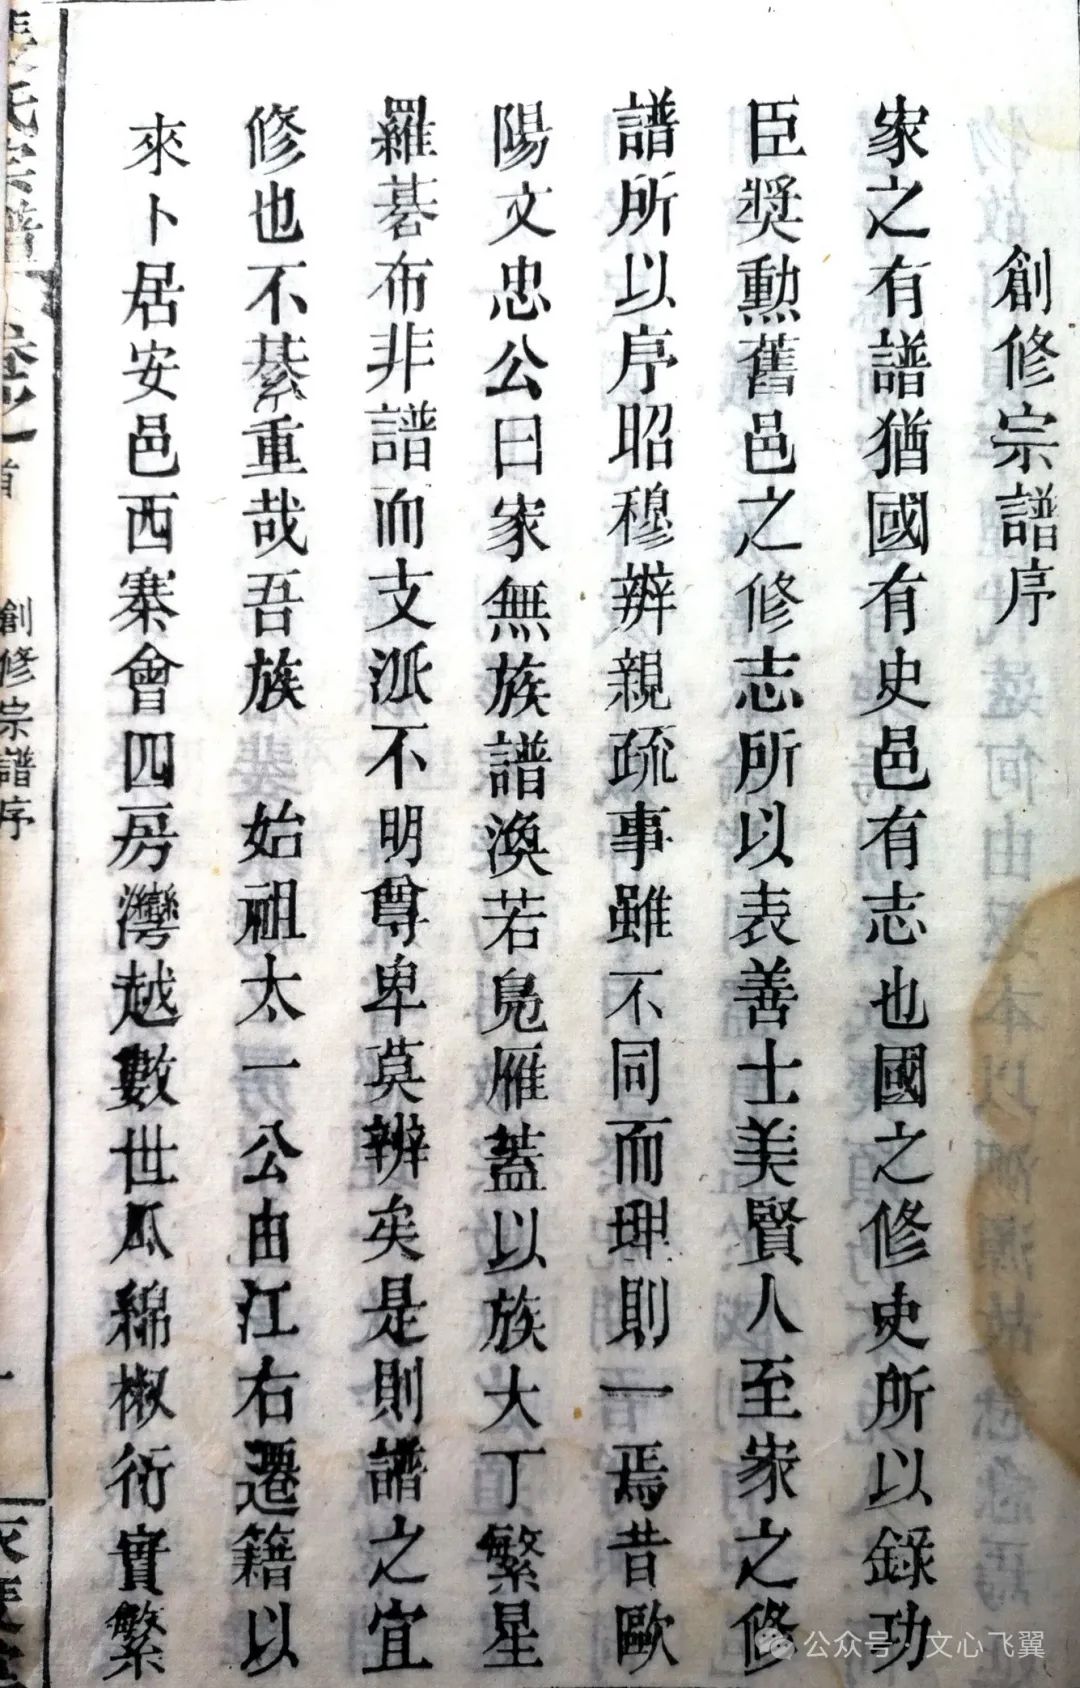 創修宗譜序
家之有譜猶國有史邑有志也國之修史所以錄功
臣獎勲舊邑之修志所以表善士美賢人至家之修
譜所以序昭穆辨親疏事雖不同而理則一焉昔歐
陽文忠公曰家無族譜渙若鳧雁蓋以族大丁繁星
羅碁布非譜而支派不明尊卑莫辨矣是則譜之宜
修也不綦重哉吾族 始祖太一公由江右遷籍以
來卜居安邑西寨會四房灣越數世瓜綿椒衍實繁
氏宗譜 卷之首
創修宗譜序
一
公众号·文心飞翼